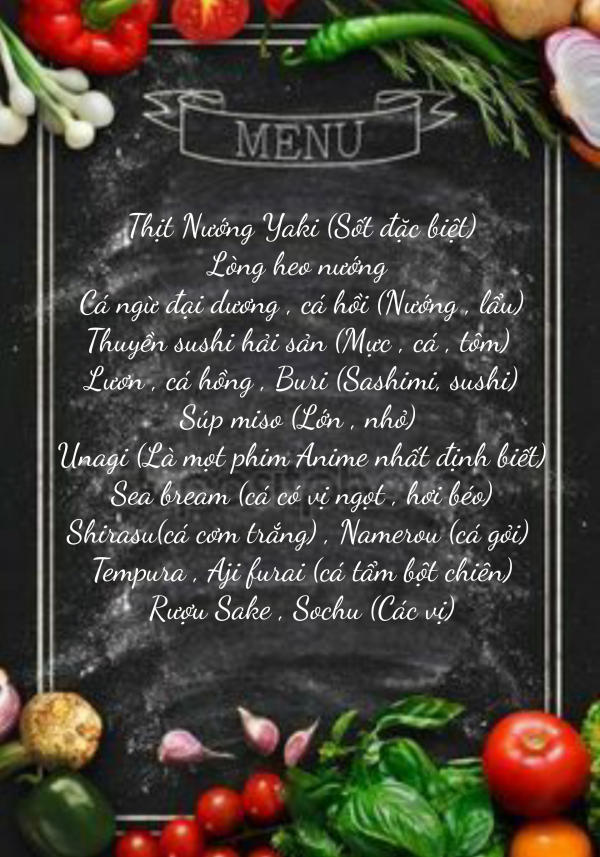 MENU
Thịt Nướng Yaki (Sốt đặc biệt)
Lòng heo nướng
Cá ngừ đại dương , cá hồi (Nướng , lẩu)
Thuyền sushi hải sản (Mực , cá , tôm)
Lươn , cá hồng , Buri (Sashimi, sushi)
Súp miso (Lớn , nhỏ)
Unagi (Là mọt phim Anime nhất định biết)
Sea bream (cá có vị ngọt , hơi béo)
Shirasu(cá cơm trắng) , Namerou (cá gỏi)
Tempura , Aji furai (cá tẩm bột chiên)
Rượu Sake , Sochu (Các vị)